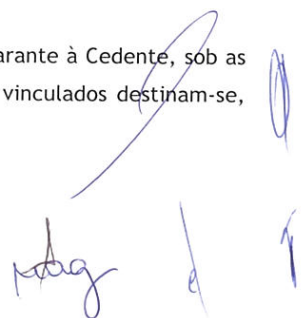 arante à Cedente, sob as
vinculados destinam-se,